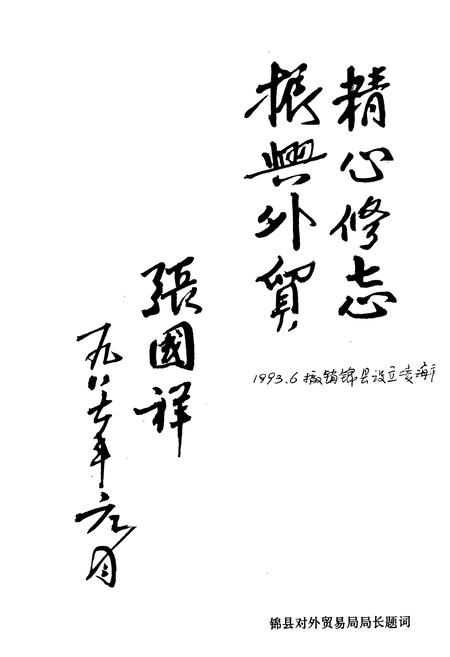 精心修志
振興外貿
張國祥
一九八七年元月
1993.6 撤销锦县设立凌海市
锦县对外贸易局局长题词